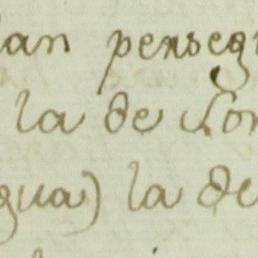 ian persegu
la de Lon
gua) la de